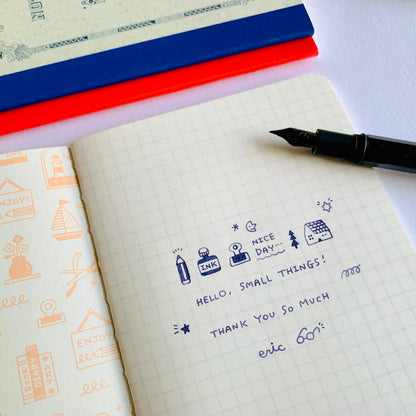 NOT
ENJOY!
BOOK
DIARY
ENJOY
INK
NICE
DAY...
HELLO, SMALL THINGS!
THANK YOU SO MUCH
eric